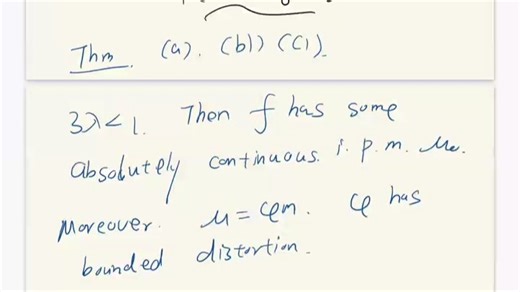 Thm. (a). (b)) (c).
3λ<1. Then f has some
absolutely continuous. i. p. m. μ.
Moreover. μ = φm. φ has
bounded distortion.